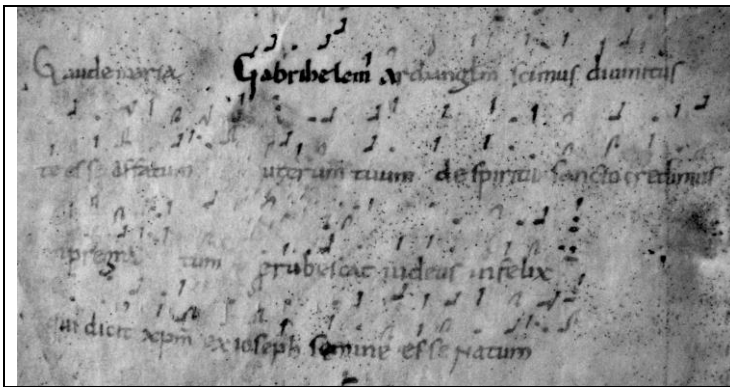 Gaude maria Gabrihelem Archanglm scimus divinitus
te esse affatum uterum tuum de spiritu sancto credimus
impregnatum erubescat iudeus infelix
qui dicit xpm ex ioseph semine esse natum